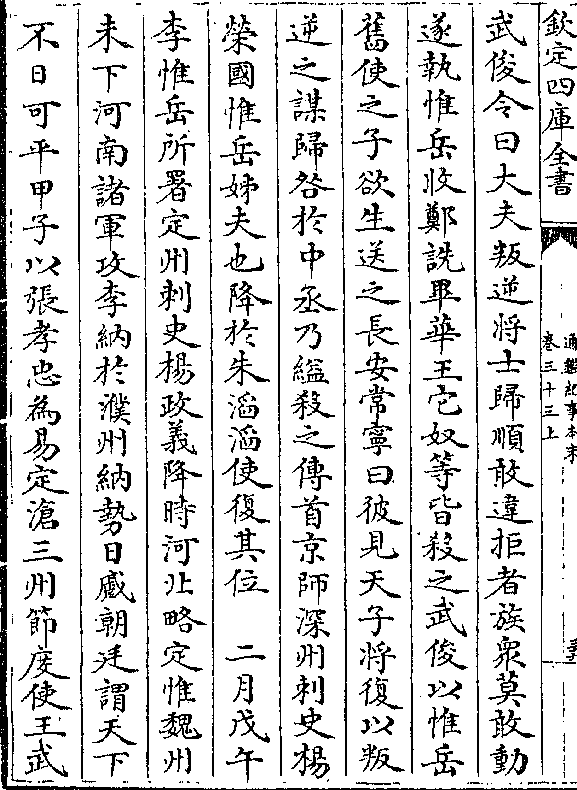 欽定四庫全書
通鑑紀事本末
卷三十三上
武俊令曰大夫叛逆將士歸順敢違拒者族衆莫敢動
遂執惟岳收鄭詵畢華王它奴等皆殺之武俊以惟岳
舊使之子欲生送之長安常寧曰彼見天子將復以叛
逆之謀歸咎於中丞乃縊殺之傳首京師深州刺史楊
榮國惟岳姊夫也降於朱滔滔使復其位　二月戊午
李惟岳所署定州刺史楊政義降時河北略定惟魏州
未下河南諸軍攻李納於濮州納勢日蹙朝廷謂天下
不日可平甲子以張孝忠為易定滄三州節度使王武